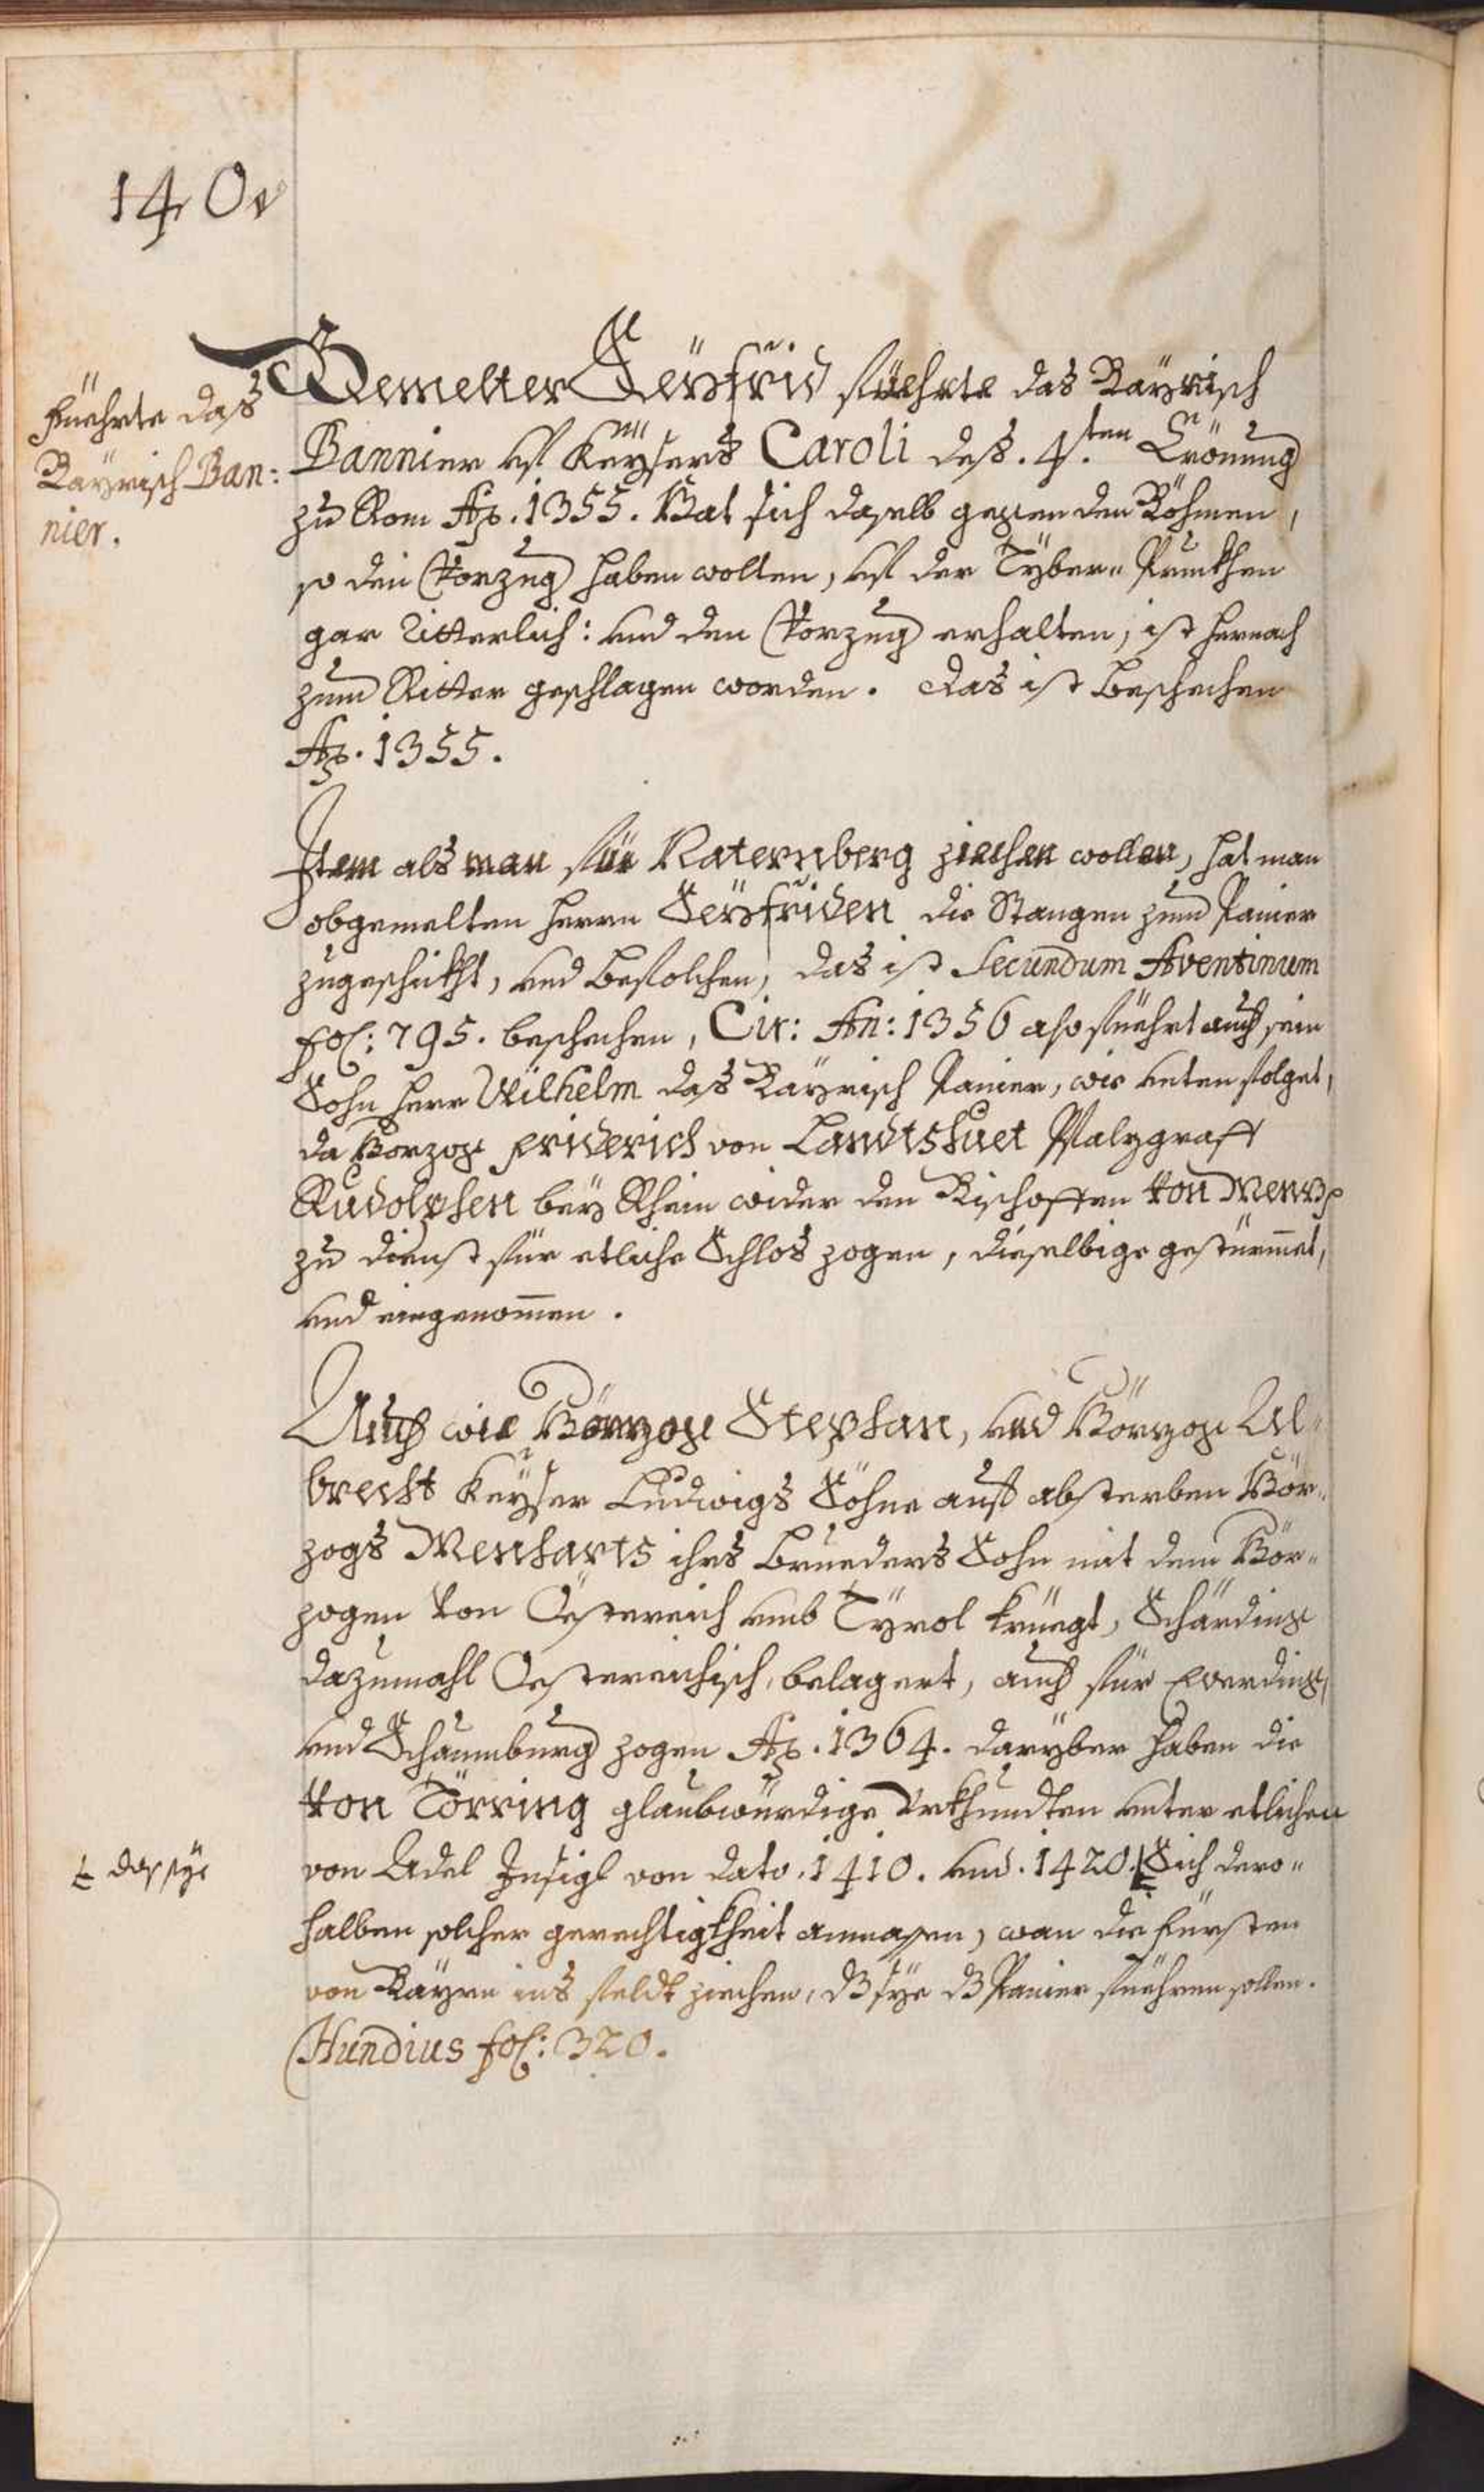 140v
Füehrte das
Bayrisch Ban:
nier.
Gemelter Seyfrid füehrte das Bayrisch
Bannier vf Keysers Caroli deß. 4.ten Crönung
zu Rom Ao. 1355. Hat sich daselb gegen den Böhmen,
so den Vorzug haben wollen, vf der Tyber„ Prukhen
gar Ritterlich: vnd den Vorzug erhalten, ist hernach
zum Ritter geschlagen worden. Das ist Beschechen
Ao. 1355.
Item als man für Naternberg ziechen wollen, hat man
obgemelten Herrn Seyfriden die Stangen zum Panier
zugeschikht, vnd Befolchen, das ist Secundum Aventinum
fol: 795. beschechen, Cir: An: 1356 also füehrt auch sein
Sohn Herr Wilhelm das Bayrisch Panier, wie vnten folget,
da Herzog Friderich von Landtshuet Pfalzgraff
Rudolphen bey Rhein wider den Bischoffen von Menz
zu dienst für etliche Schlos zogen, dieselbige gestürmet,
vnd eingenomen.
Auch wie Hörzog Stephan, vnd Hörzog Al„
brecht Keyser Ludwigs Söhne auf absterben Hör„
zogs Menharts ihrs Brueders Sohn mit dem Hör„
zogen von Östereich vmb Tyrol kriegt, Schärding
dazumahl Östereichisch, belagert, auch für Everding,
vnd Schaumburg zogen Ao. 1364. daryber haben die
von Törring glaubwürdige Vrkhundten vnter etlichen
von Adel Insigl von dato. 1410. vnd. 1420. Sich dero„
das sye
halben solcher gerechtigkheit anmassen, wan die Fürsten
von Bayrn ins feldt ziechen, dß sye dß Panier füehren sollen.
Hundius fol: 320.